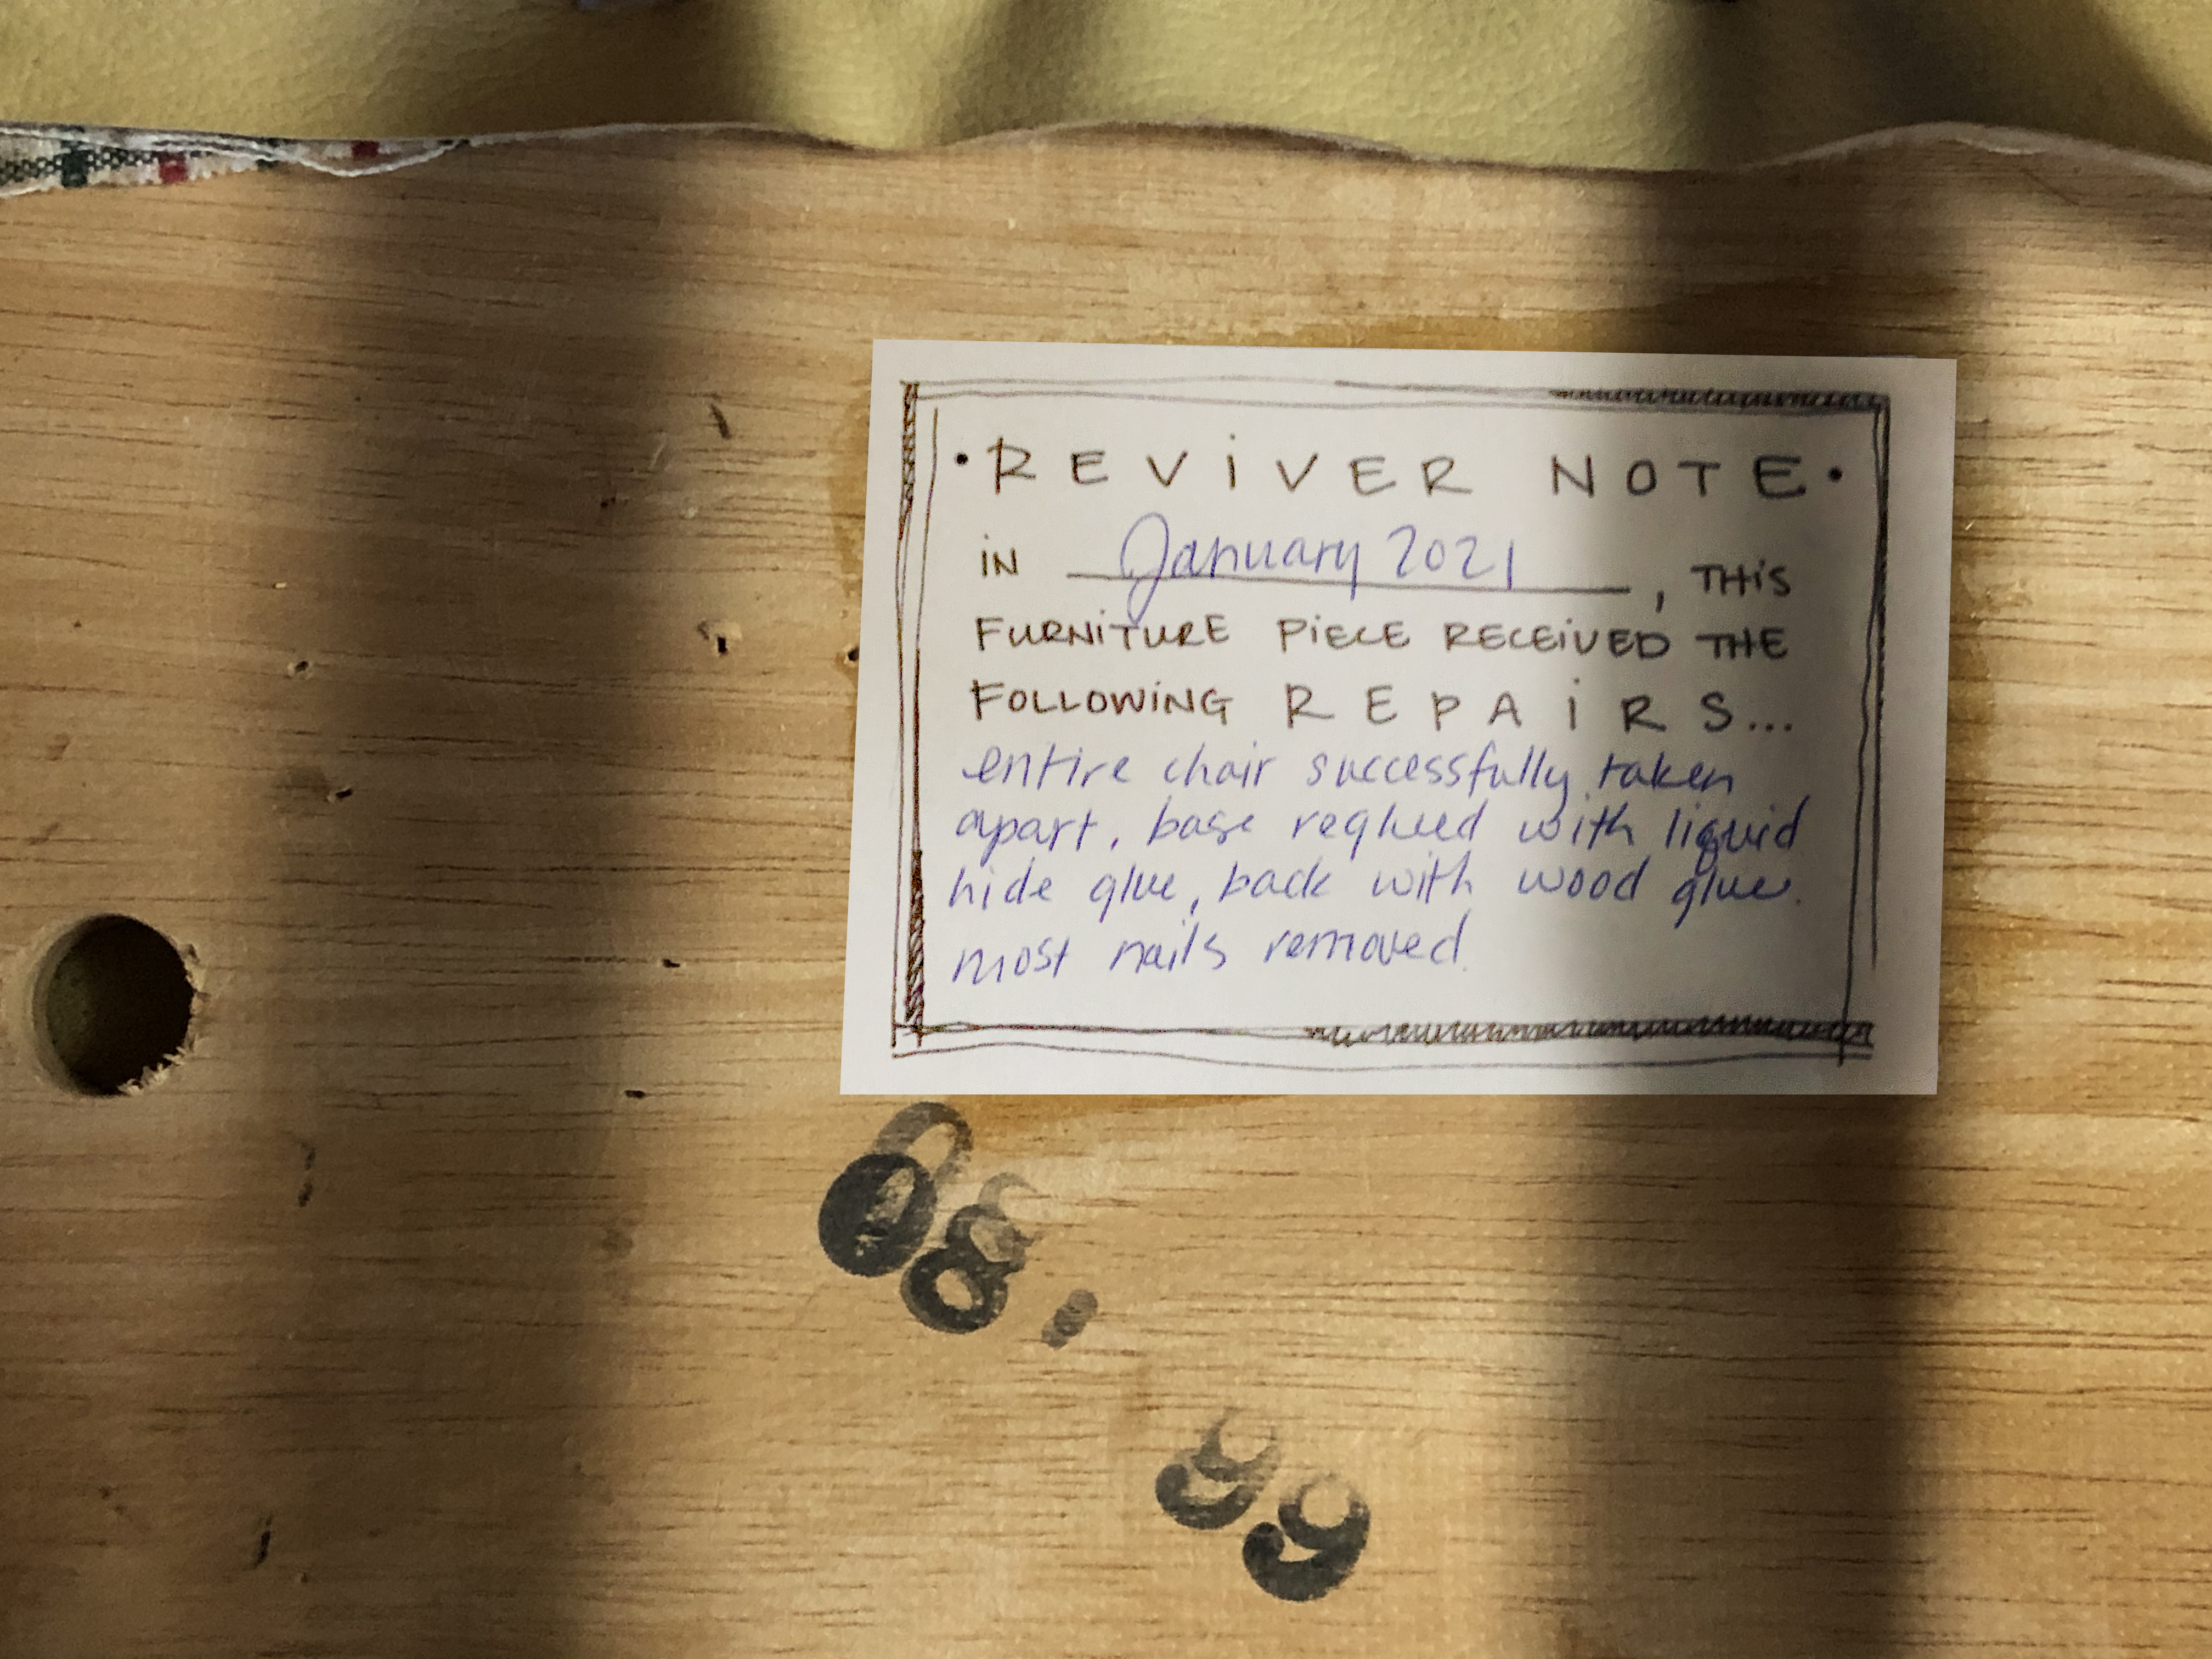 • REViVER NOTE •
iN January 2021, THiS
FURNiTURE PiECE RECEiVED THE
FOLLOWiNG REPAiRS...
entire chair successfully taken
apart, base reglued with liquid
hide glue, back with wood glue.
most nails removed.
08.
99